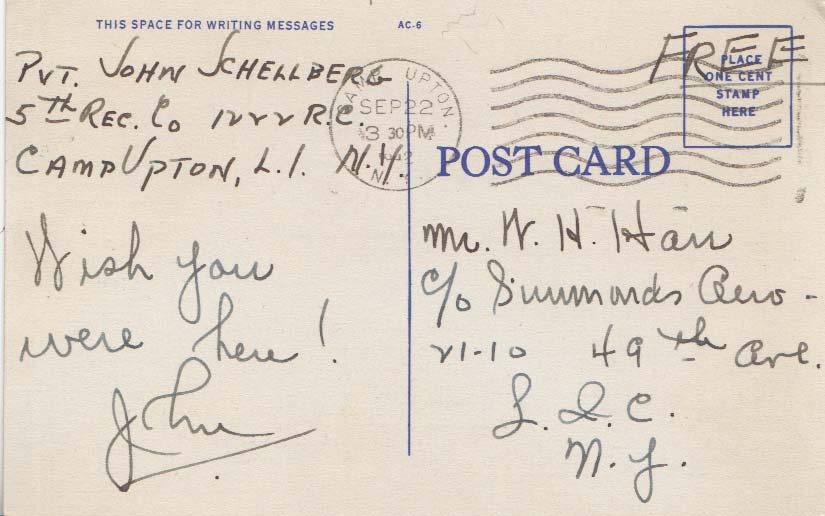 THIS SPACE FOR WRITING MESSAGES
AC-6
PVT. JOHN SCHELLBERG
5TH REC. Co 1222 R.C.
CAMP UPTON, L.I. N.Y.
Wish you
were here!
John
CAMP UPTON.
SEP 22
3 30 PM
1942
N.Y.
FREE
PLACE
ONE CENT
STAMP
HERE
POST CARD
Mr. W. H.
c/o Simmonds Aero-
21-10 49th Ave.
L. I. C.
N. Y.